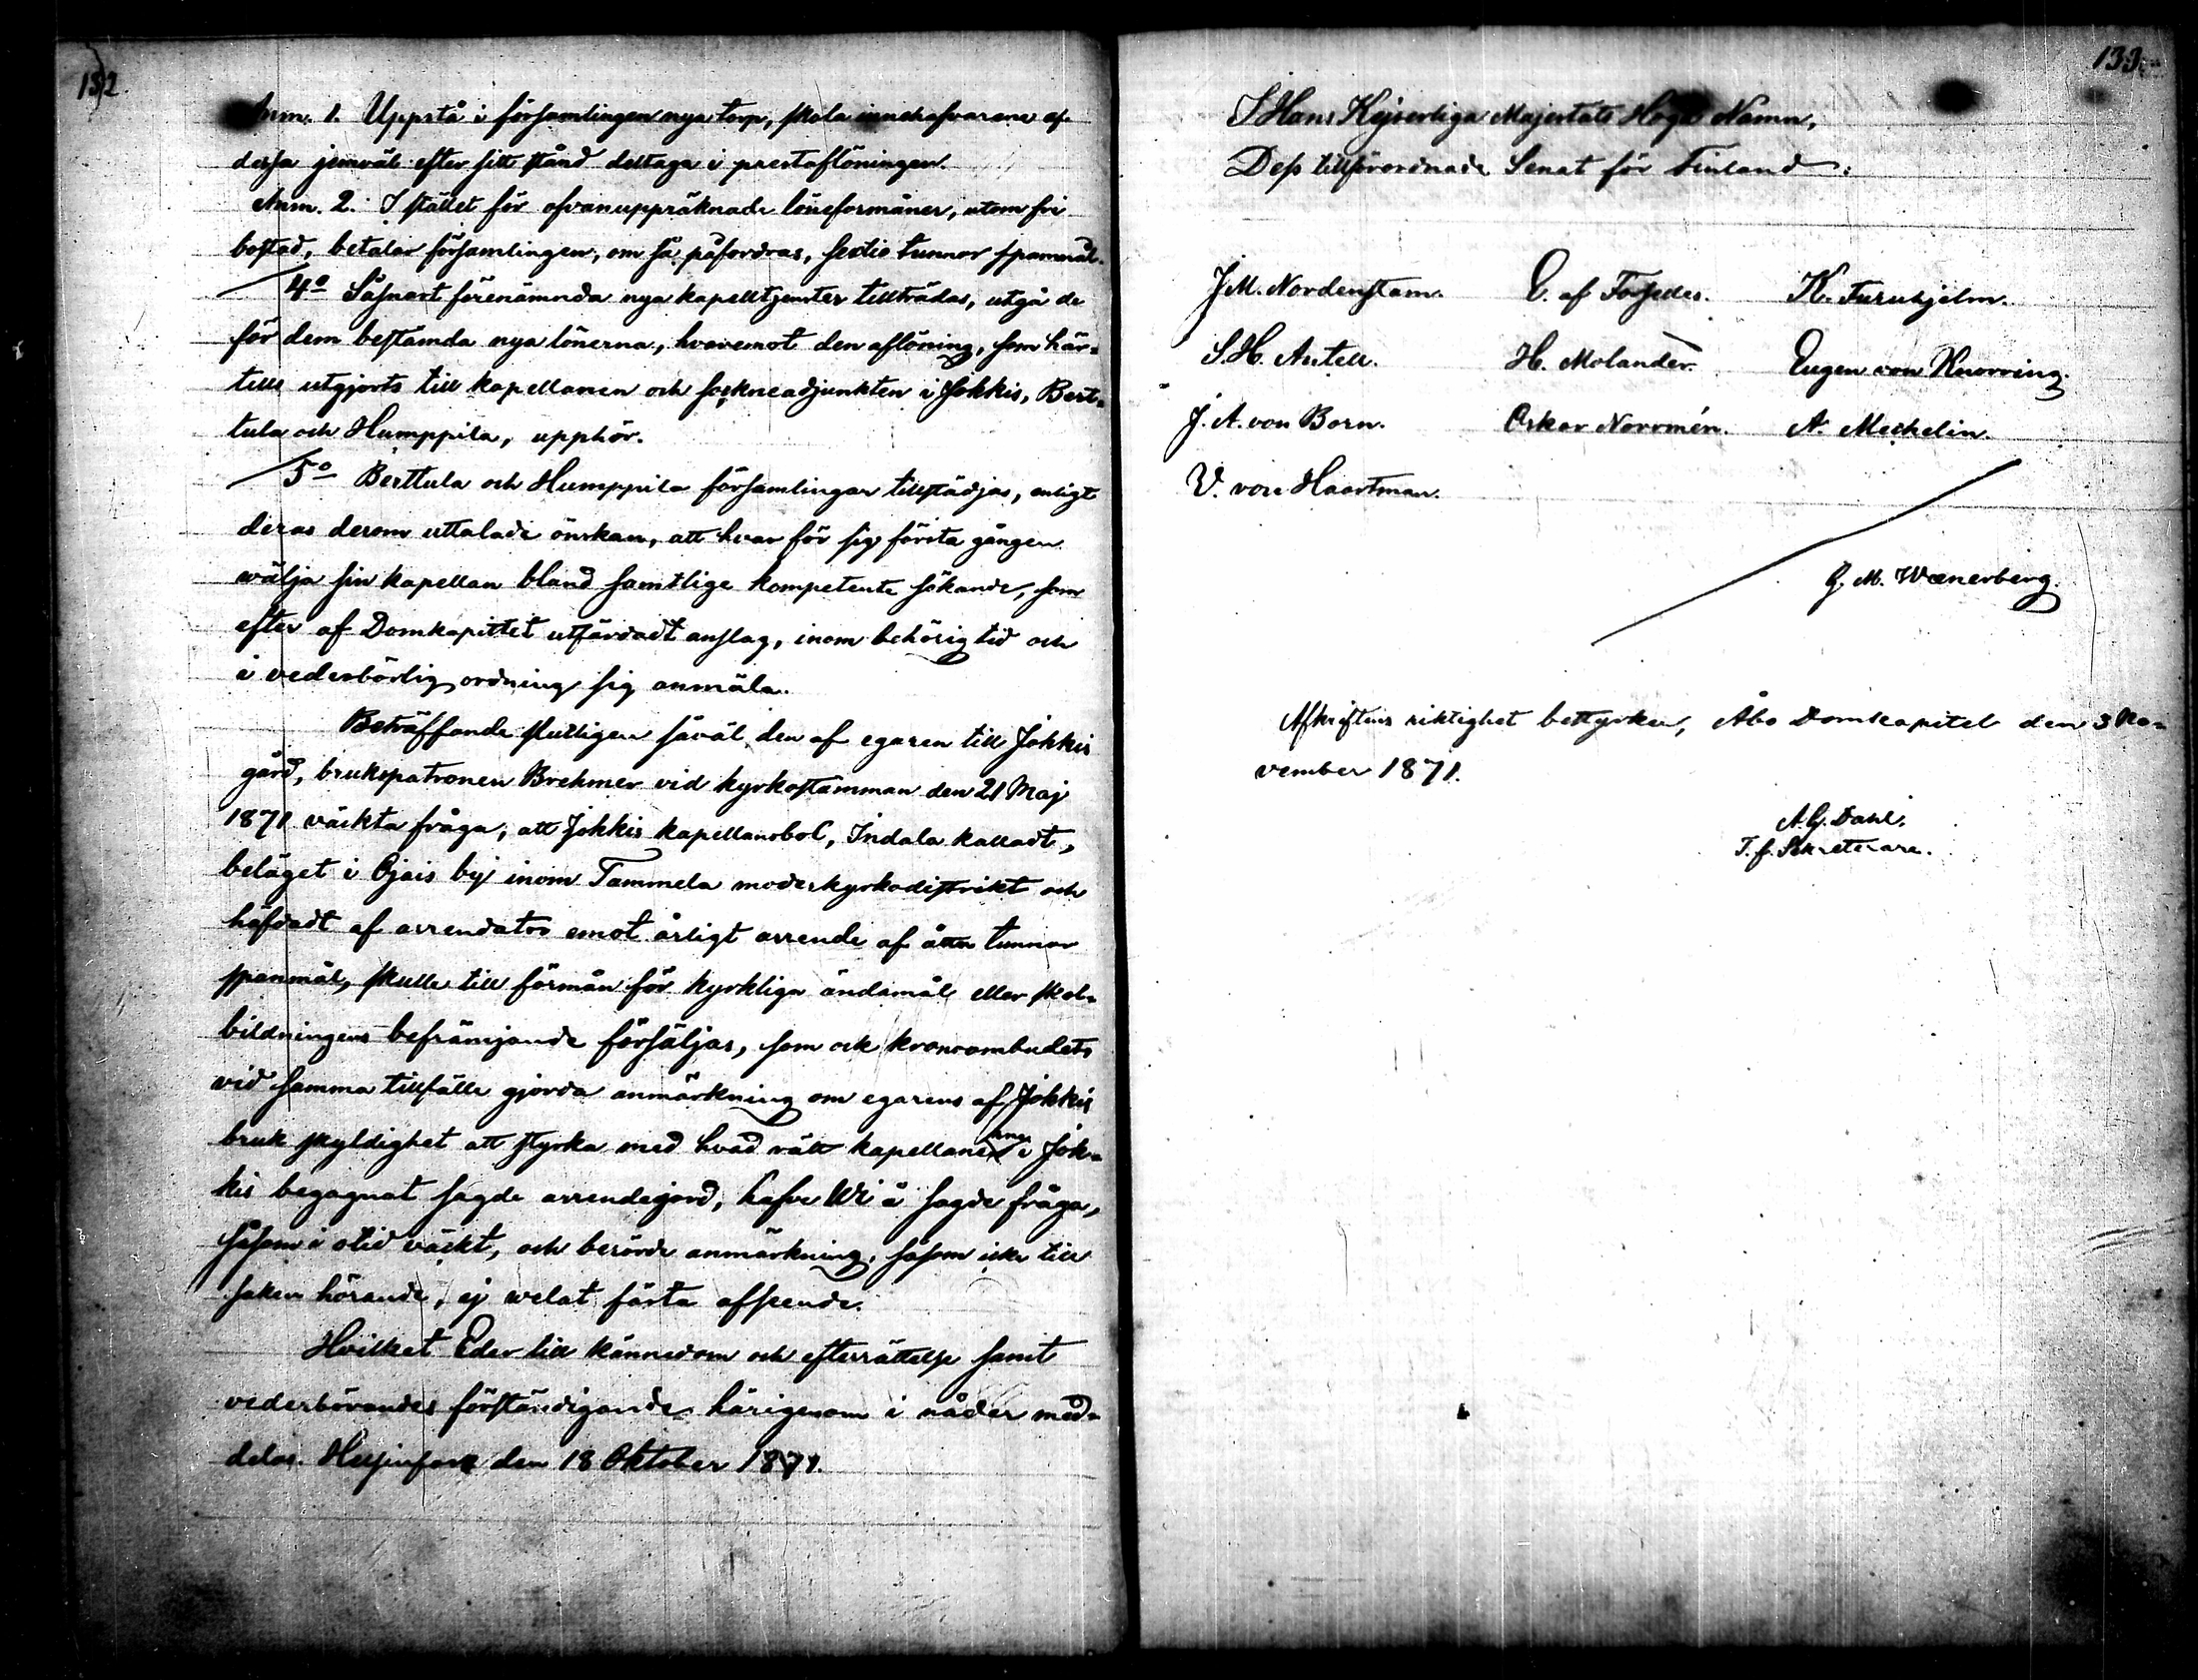 132.
Anm. 1. Uppstå i församlingen nya torp, skola innehafvarene af
dessa jemväl efter sitt stånd deltaga i prestaflöningen.
Anm. 2. I stället för ofvanuppräknade löneförmåner, utom fri
bostad, betalar församlingen, om så påfordras, sextio tunnor spanmål.
4o Såsnart förenämnda nya kapelltjenster tillträdas, utgå de
för dem bestämda nya lönerna, hvaremot den aflöning, som här-
tills utgjorts till kapellanen och sockneadjunkten i Jokkis, Bert-
tula och Humppila, upphör.
5o Berttula och Humppila församlingar tillstädjas, enligt
deras derom uttalade önskan, att hvar för sig första gången
wälja sin kapellan bland samtlige kompetente sökande, som
efter af Domkapitlet utfärdadt anslag, inom behörig tid och
i vederbörlig ordning sig anmäla.
Beträffande slutligen såväl den af egaren till Jokkis
gård, brukspatronen Brehmer vid kyrkostämman den 21 Maj
1871 väckta fråga, att Jokkis kapellansbol, Indala kalladt,
beläget i Ojais by inom Tammela moderkyrkodistrikt och
häfdadt af arrendator emot årligt arrende af åtta tunnor
spanmål, skulle till förmån för kyrkliga ändamål eller skol-
bildningens befrämjande försäljas, som ock kronoombudets
vid samma tillfälle gjorda anmärkning om egarens af Jokkis
bruk skyldighet att styrka med hvad rätt kapellanerne i Jok-
kis begagnat sagde arrendejord, hafve Wi å sagde fråga,
såsom i otid väckt, och berörde anmärkning, såsom icke till
saken hörande, ej welat fästa afseende.
Hvilket Eder till kännedom och efterrättelse samt
vederbörandes förständigande härigenom i nåder med-
delas. Helsinfors den 18 Oktober 1871.
133.
I Hans Kejserliga Majestäts Höga Namn,
Dess tillförordnade Senat för Finland:
J. M. Nordenstam. O. af Forselles. K. Furuhjelm.
S. H. Antell. H. Molander. Eugen von Knorring.
J. A. von Born. Oskar Norrmén. A. Mechelin.
V. von Haartman.
G. M. Wænerberg.
Afskriftens riktighet bestyrker, Åbo Domkapitel den 3 No-
vember 1871.
A. G. Dahl.
T. f. Sekreterare.